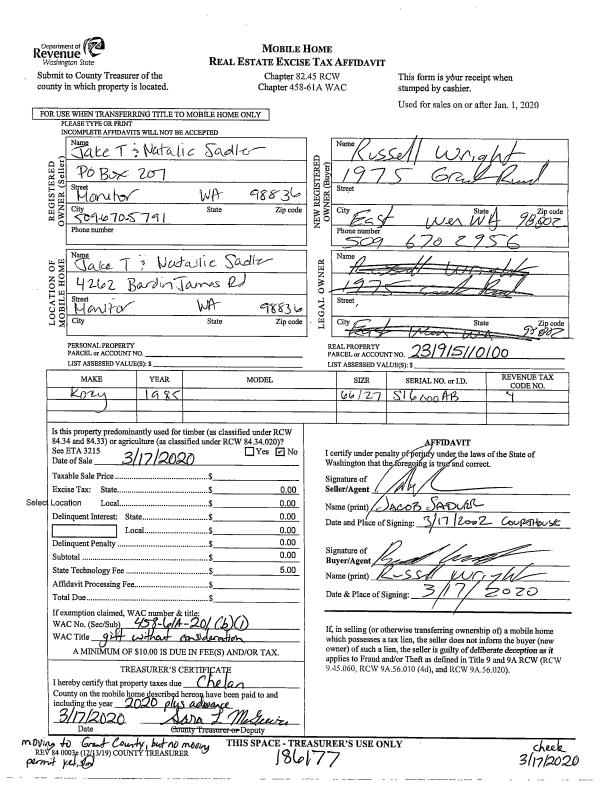 Department of
Revenue
Washington State
MOBILE HOME
REAL ESTATE EXCISE TAX AFFIDAVIT
Submit to County Treasurer of the
county in which property is located.
Chapter 82.45 RCW
Chapter 458-61A WAC
This form is your receipt when
stamped by cashier.
Used for sales on or after Jan. 1, 2020
FOR USE WHEN TRANSFERRING TITLE TO MOBILE HOME ONLY
PLEASE TYPE OR PRINT
INCOMPLETE AFFIDAVITS WILL NOT BE ACCEPTED
REGISTERED
OWNER (Seller)
Name
Jake T & Natalie Sadler
PO Box 207
Street
Monitor WA 98836
City State Zip code
5096705791
Phone number
NEW REGISTERED
OWNER (Buyer)
Name
Russell Wright
1975 Grant Road
Street
East Wen WA 98802
City State Zip code
Phone number
509 670 2956
LOCATION OF
MOBILE HOME
Name
Jake T & Natalie Sadler
4262 Bardin James Rd
Street
Monitor WA 98836
City State Zip code
LEGAL OWNER
Name
Russell Wright
1975 Grant Road
Street
East Wen WA 98802
City State Zip code
PERSONAL PROPERTY
PARCEL or ACCOUNT NO.
LIST ASSESSED VALUE(S): $
REAL PROPERTY
PARCEL or ACCOUNT NO. 231915110100
LIST ASSESSED VALUE(S): $
MAKE YEAR MODEL SIZE SERIAL NO. or I.D. REVENUE TAX CODE NO.
Kozy 1985 66/27 S16000AB 4
Is this property predominantly used for timber (as classified under RCW
84.34 and 84.33) or agriculture (as classified under RCW 84.34.020)?
See ETA 3215 Yes No
Date of Sale 3/17/2020
Taxable Sale Price $
Excise Tax: State $ 0.00
Select Location Local $ 0.00
Delinquent Interest: State $ 0.00
Local $ 0.00
Delinquent Penalty $ 0.00
Subtotal $ 0.00
State Technology Fee $ 5.00
Affidavit Processing Fee $
Total Due $
If exemption claimed, WAC number & title:
WAC No. (Sec/Sub) 458-61A-201(b)(1)
WAC Title gift without consideration
A MINIMUM OF $10.00 IS DUE IN FEE(S) AND/OR TAX.
TREASURER'S CERTIFICATE
I hereby certify that property taxes due Chelan
County on the mobile home described hereon have been paid to and
including the year 2020 plus advance
3/17/2020
Date County Treasurer or Deputy
AFFIDAVIT
I certify under penalty of perjury under the laws of the State of
Washington that the foregoing is true and correct.
Signature of
Seller/Agent
Name (print) JACOB SADLER
Date and Place of Signing: 3/17/2002 COURTHOUSE
Signature of
Buyer/Agent
Name (print) Russell Wright
Date & Place of Signing: 3/17/2020
If, in selling (or otherwise transferring ownership of) a mobile home
which possesses a tax lien, the seller does not inform the buyer (new
owner) of such a lien, the seller is guilty of deliberate deception as it
applies to Fraud and/or Theft as defined in Title 9 and 9A RCW (RCW
9.45.060, RCW 9A.56.010 (4d), and RCW 9A.56.020).
moving to Grant County, but no moving
permit yet.
REV 84 0003e (12/13/19) COUNTY TREASURER
THIS SPACE - TREASURER'S USE ONLY
186177
check
3/17/2020